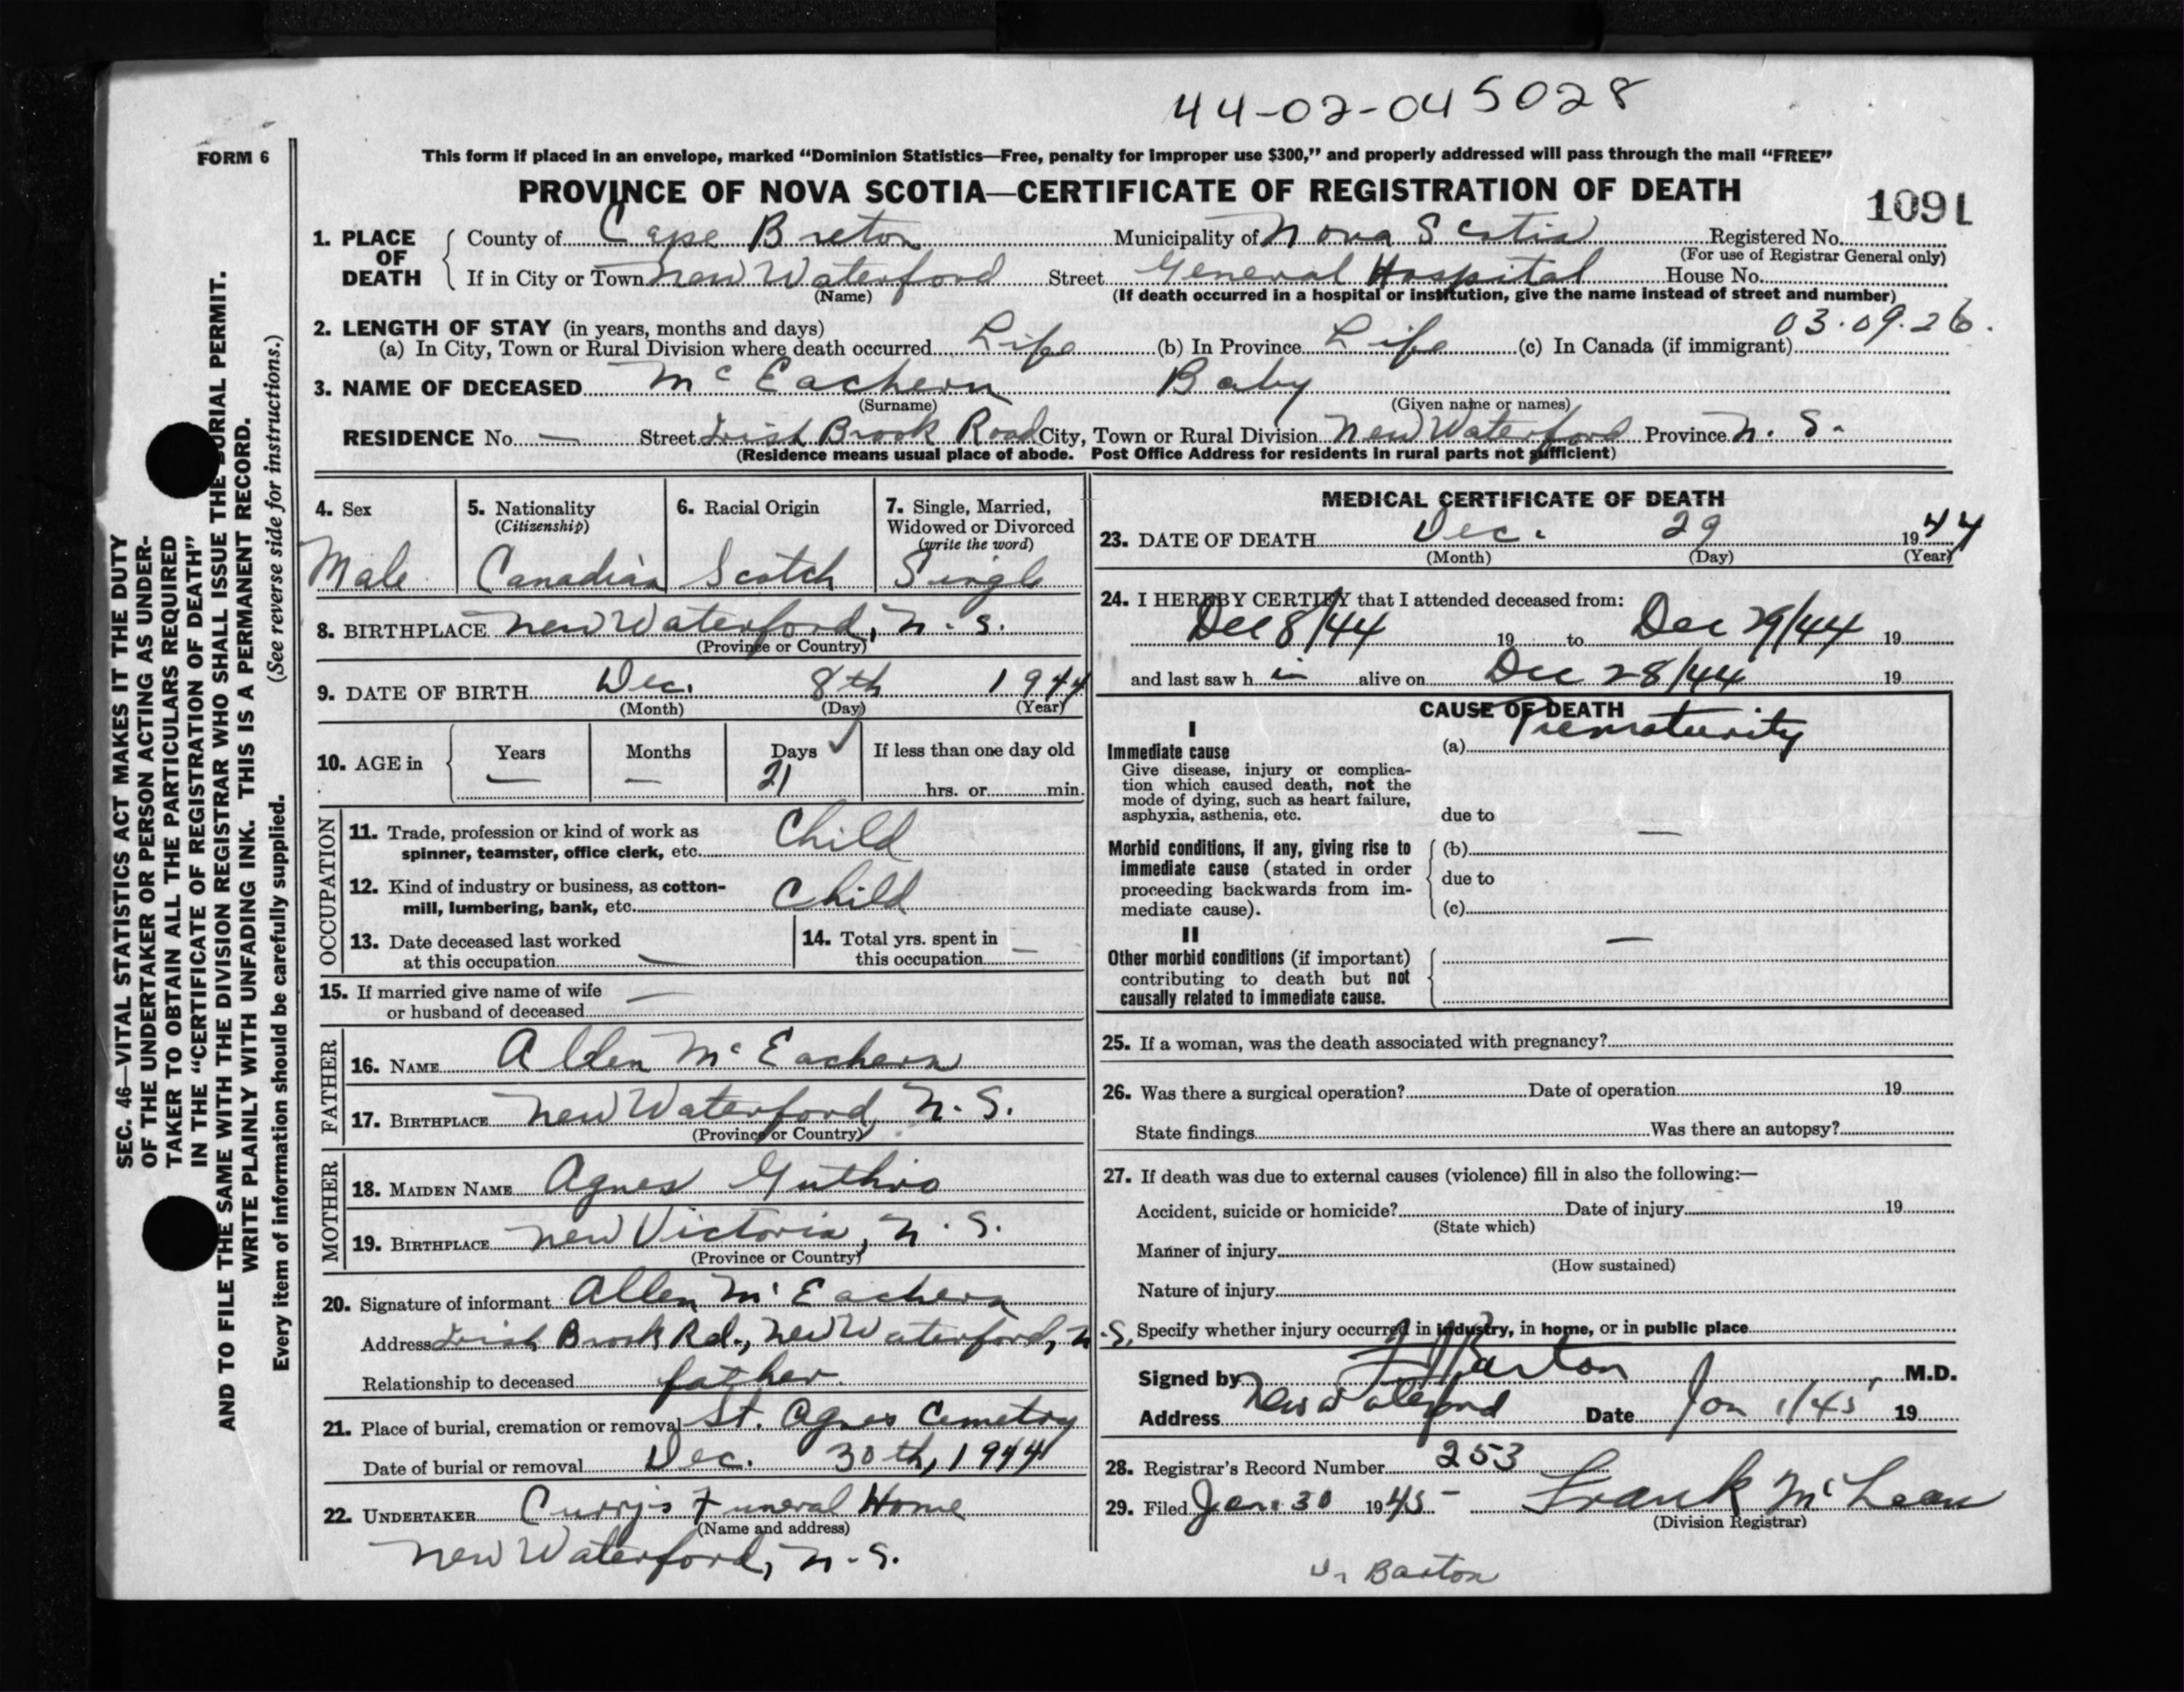 44-02-04 5028
FORM 6
This form if placed in an envelope, marked “Dominion Statistics—Free, penalty for improper use $300,” and properly addressed will pass through the mail “FREE”
PROVINCE OF NOVA SCOTIA—CERTIFICATE OF REGISTRATION OF DEATH
1091
1. PLACE OF DEATH County of Cape Breton Municipality of Nova Scotia Registered No.
(For use of Registrar General only)
If in City or Town New Waterford Street General Hospital House No.
(Name) (If death occurred in a hospital or institution, give the name instead of street and number)
2. LENGTH OF STAY (in years, months and days) 03.09.26.
(a) In City, Town or Rural Division where death occurred Life (b) In Province Life (c) In Canada (if immigrant)
3. NAME OF DECEASED McEachern Baby
(Surname) (Given name or names)
RESIDENCE No. — Street Irish Brook Road City, Town or Rural Division New Waterford Province N. S.
(Residence means usual place of abode. Post Office Address for residents in rural parts not sufficient)
4. Sex 5. Nationality 6. Racial Origin 7. Single, Married,
(Citizenship) Widowed or Divorced
(write the word)
Male Canadian Scotch Single
8. BIRTHPLACE New Waterford, N. S.
(Province or Country)
9. DATE OF BIRTH Dec. 8th 1944
(Month) (Day) (Year)
10. AGE in Years Months Days ✓ If less than one day old
— — 21 hrs. or min.
OCCUPATION
11. Trade, profession or kind of work as
spinner, teamster, office clerk, etc. Child
12. Kind of industry or business, as cotton-
mill, lumbering, bank, etc. Child
13. Date deceased last worked
at this occupation —
14. Total yrs. spent in
this occupation —
15. If married give name of wife
or husband of deceased —
FATHER
16. NAME Allen McEachern
17. BIRTHPLACE New Waterford, N. S.
(Province or Country)
MOTHER
18. MAIDEN NAME Agnes Guthro
19. BIRTHPLACE New Victoria, N. S.
(Province or Country)
20. Signature of informant Allen McEachern
Address Irish Brook Rd., New Waterford, N.S.
Relationship to deceased father.
21. Place of burial, cremation or removal St. Agnes Cemetry
Date of burial or removal Dec. 30th, 1944
22. UNDERTAKER Curry's Funeral Home
(Name and address)
New Waterford, N. S.
MEDICAL CERTIFICATE OF DEATH
23. DATE OF DEATH Dec. 29 1944
(Month) (Day) (Year)
24. I HEREBY CERTIFY that I attended deceased from:
Dec 8/44 19 to Dec 29/44 19
and last saw h im alive on Dec 28/44 19
CAUSE OF DEATH
I
Immediate cause (a) Prematurity
Give disease, injury or complica-
tion which caused death, not the
mode of dying, such as heart failure,
asphyxia, asthenia, etc. due to
—
Morbid conditions, if any, giving rise to (b)
immediate cause (stated in order due to
proceeding backwards from im-
mediate cause). (c)
II —
Other morbid conditions (if important)
contributing to death but not
causally related to immediate cause.
25. If a woman, was the death associated with pregnancy?
26. Was there a surgical operation? Date of operation 19
State findings Was there an autopsy?
27. If death was due to external causes (violence) fill in also the following:—
Accident, suicide or homicide? Date of injury 19
(State which)
Manner of injury
(How sustained)
Nature of injury
Specify whether injury occurred in industry, in home, or in public place
Signed by Barton M.D.
Address New Waterford Date Jan 1/45 19
28. Registrar's Record Number 253
29. Filed Jan. 30 1945 Frank McLean
(Division Registrar)
Dr Barton
SEC. 46—VITAL STATISTICS ACT MAKES IT THE DUTY
OF THE UNDERTAKER OR PERSON ACTING AS UNDER-
TAKER TO OBTAIN ALL THE PARTICULARS REQUIRED
IN THE “CERTIFICATE OF REGISTRATION OF DEATH”
AND TO FILE THE SAME WITH THE DIVISION REGISTRAR WHO SHALL ISSUE THE BURIAL PERMIT.
WRITE PLAINLY WITH UNFADING INK. THIS IS A PERMANENT RECORD.
Every item of information should be carefully supplied. (See reverse side for instructions.)